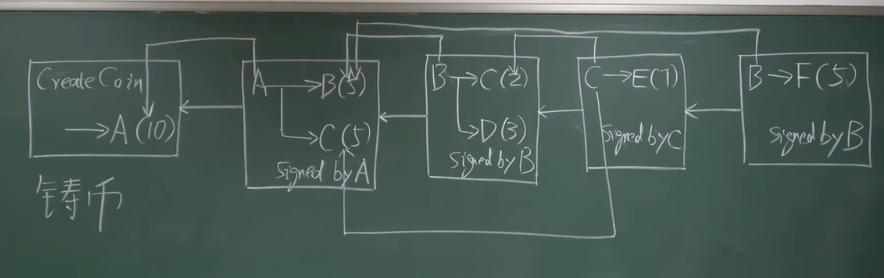 CreateCoin
→A(10)
铸币
A→B(5)
→C(5)
signed by A
B→C(2)
→D(3)
signed by B
C→E(7)
signed by C
B→F(5)
signed by B